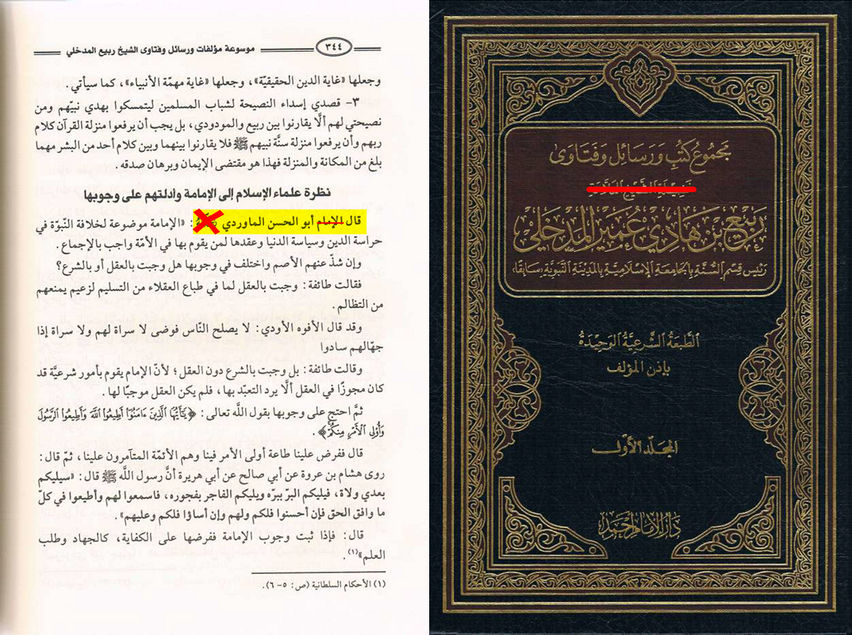 موسوعة مؤلفات ورسائل وفتاوى الشيخ ربيع المدخلي
٣٤٤
وجعلها «غاية الدين الحقيقيّة»، وجعلها «غاية مهمّة الأنبياء»، كما سيأتي.
٣- قصدي إسداء النصيحة لشباب المسلمين ليتمسكوا بهدي نبيّهم ومن
نصيحتي لهم ألَّا يقارنوا بين ربيع والمودودي، بل يجب أن يرفعوا منزلة القرآن كلام
ربهم وأن يرفعوا منزلة سنَّة نبيهم ﷺ فلا يقارنوا بينهما وبين كلام أحد من البشر مهما
بلغ من المكانة والمنزلة فهذا هو مقتضى الإيمان وبرهان صدقه.
نظرة علماء الإسلام إلى الإمامة وأدلتهم على وجوبها
قال الإمام أبو الحسن الماوردي : «الإمامة موضوعة لخلافة النبّوة في
حراسة الدين وسياسة الدنيا وعقدها لمن يقوم بها في الأمّة واجب بالإجماع.
وإن شذّ عنهم الأصم واختلف في وجوبها هل وجبت بالعقل أو بالشرع؟
فقالت طائفة: وجبت بالعقل لما في طباع العقلاء من التسليم لزعيم يمنعهم
من التظالم.
وقد قال الأفوه الأودي: لا يصلح النّاس فوضى لا سراة لهم ولا سراة إذا
جهّالهم سادوا
وقالت طائفة: بل وجبت بالشرع دون العقل؛ لأنّ الإمام يقوم بأمور شرعيَّة قد
كان مجوزًا في العقل ألَّا يرد التعبّد بها، فلم يكن العقل موجبًا لها.
ثمَّ احتج على وجوبها بقول اللَّه تعالى: ﴿يَٰٓأَيُّهَا ٱلَّذِينَ ءَامَنُوٓا۟ أَطِيعُوا۟ ٱللَّهَ وَأَطِيعُوا۟ ٱلرَّسُولَ
وَأُو۟لِى ٱلْأَمْرِ مِنكُمْ﴾.
قال ففرض علينا طاعة أولى الأمر فينا وهم الأئمّة المتآمرون علينا، ثمّ قال:
روى هشام بن عروة عن أبي صالح عن أبي هريرة أنَّ رسول اللَّه ﷺ قال: «سيليكم
بعدي ولاة، فيليكم البرّ ببرّه ويليكم الفاجر بفجوره، فاسمعوا لهم وأطيعوا في كلّ
ما وافق الحق فإن أحسنوا فلكم ولهم وإن أساؤا فلكم وعليهم».
قال: فإذا ثبت وجوب الإمامة ففرضها على الكفاية، كالجهاد وطلب
العلم»(١).
(١) الأحكام السلطانية (ص: ٥-٦).
مجموع كتب ورسائل وفتاوى
ربيع بن هادي عمير المدخلي
رئيس قسم السنة بالجامعة الإسلامية بالمدينة النبوية (سابقا)
الطبعة الشرعية الوحيدة
بإذن المؤلف
المجلد الأول
دار الإمام أحمد